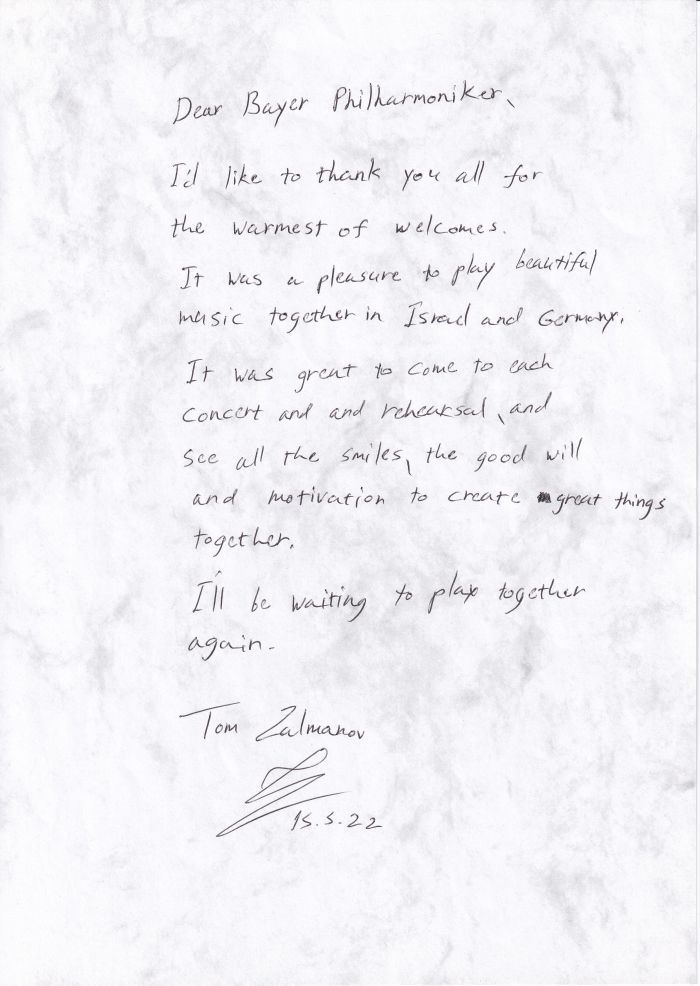 Dear Bayer Philharmoniker,
I'd like to thank you all for
the warmest of welcomes.
It was a pleasure to play beautiful
music together in Israel and Germany.
It was great to come to each
concert and and rehearsal, and
see all the smiles, the good will
and motivation to create great things
together.
I'll be waiting to play together
again.
Tom Zalmanov
15.5.22